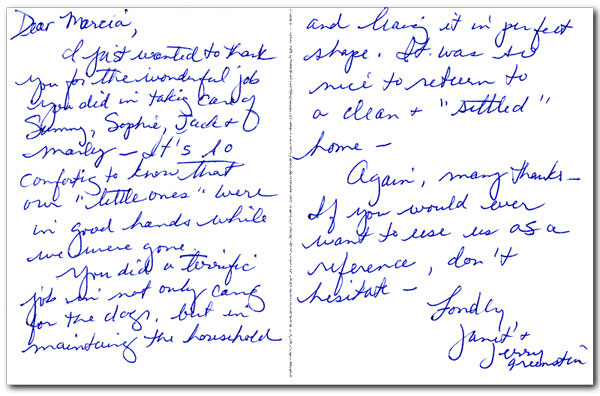 Dear Marcia,
I just wanted to thank
you for the wonderful job
you did in taking care of
Sunny, Sophie, Jack +
Marly – It's so
comforting to know that
our "little ones" were
in good hands while
we were gone.
You did a terrific
job in not only caring
for the dogs, but in
maintaing the household
and leaving it in perfect
shape. It was so
nice to return to
a clean + "settled"
home –
Again, many thanks –
If you would ever
want to use us as a
reference, don't
hesitate –
Fondly
Janet +
Jerry
Greenstein